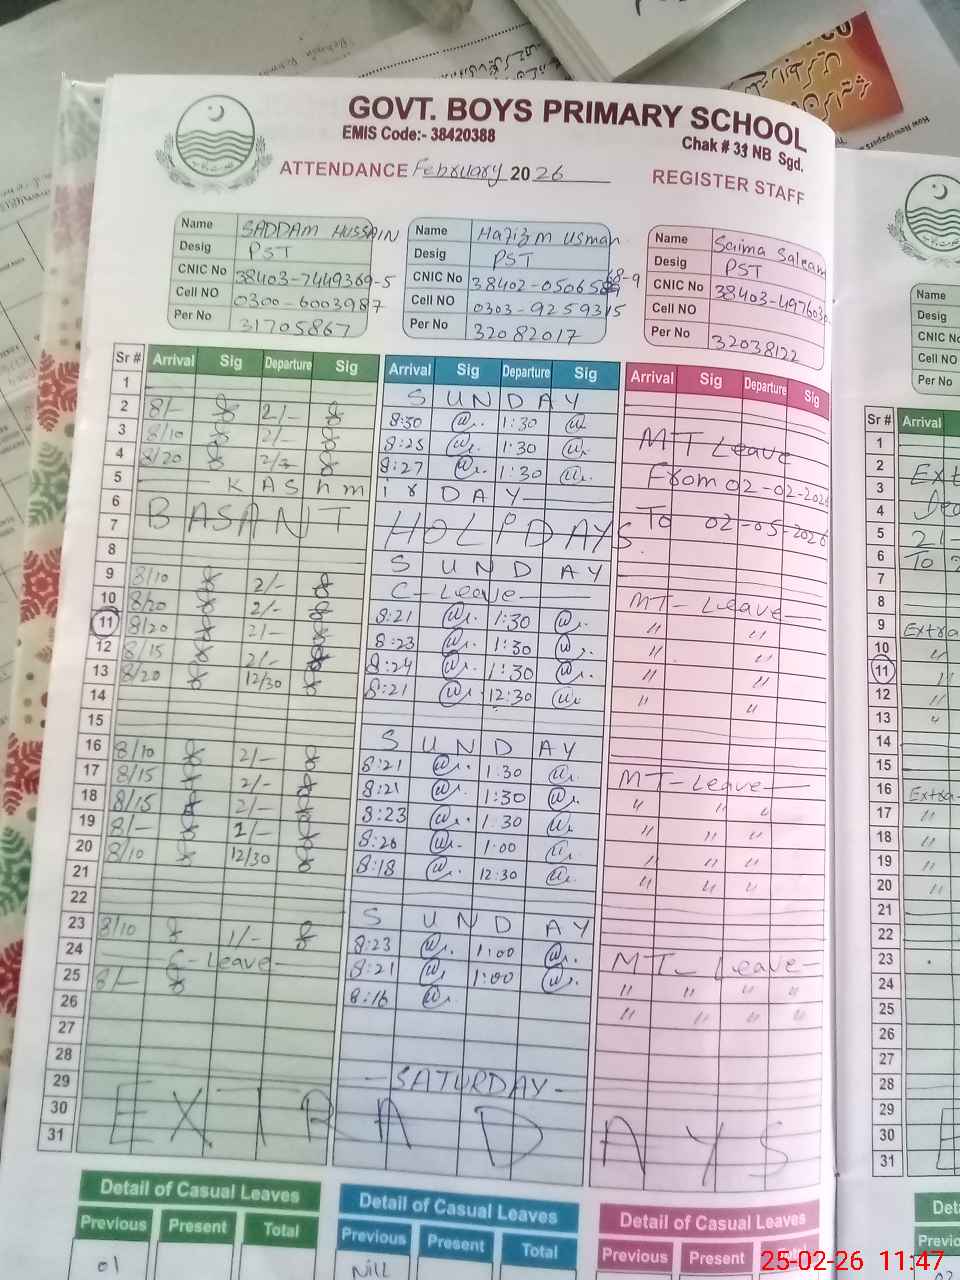 GOVT. BOYS PRIMARY SCHOOL
EMIS Code:- 38420388
Chak # 33 NB Sgd.
ATTENDANCE February 2026
REGISTER STAFF
Name SADDAM HUSSAIN
Desig PST
CNIC No 38403-7449369-5
Cell NO 0300-6003987
Per No 31705867
Name Hafiz M Usman
Desig PST
CNIC No 38402-05065
Cell NO 0303-9259315
Per No 32082017
Name Saima Saleem
Desig PST
CNIC No 38403-4976030
Cell NO
Per No 32038122
Sr # Arrival Sig Departure Sig Arrival Sig Departure Sig Arrival Sig Departure Sig
1 SUNDAY
2 8/- 2/- 8:30 1:30 MT Leave
3 8/10 2/- 8:25 1:30 From 02-02-2026
4 8/20 8:27 1:30 To 02-05-2026
5 KAShmir DAY
6 BASANT HOLIDAYS
7
8 SUNDAY
9 8/10 2/- C-Leave MT-Leave
10 8/20 2/- 8:21 1:30 " "
11 8/20 2/- 8:23 1:30 " "
12 8/15 2/- 8:24 1:30 " "
13 8/20 12/30 8:21 12:30 " "
14
15 SUNDAY
16 8/10 2/- 8:21 1:30 MT-Leave
17 8/15 2/- 8:21 1:30 " " "
18 8/15 2/- 8:23 1:30 " " "
19 8/- 2/- 8:20 1:00 " " "
20 8/10 12/30 8:18 12:30 " " "
21
22 SUNDAY
23 8/10 1/- 8:23 1:00 MT-Leave
24 C-Leave 8:21 1:00 " " " "
25 8/- 8:16 " " " "
26
27
28 -SATURDAY-
29 EXTRA DAYS
30
31
Detail of Casual Leaves
Previous Present Total
01
Detail of Casual Leaves
Previous Present Total
Nill
Detail of Casual Leaves
Previous Present Total
Name
Desig
CNIC No
Cell NO
Per No
Sr # Arrival
1
2
3
4
5 21-
6 To
7
8
9 Extra
10 "
11 "
12 "
13 "
14
15
16 Extra-
17 "
18 "
19 "
20 "
21
22
23
24
25
26
27
28
29
30
31
25-02-26 11:47